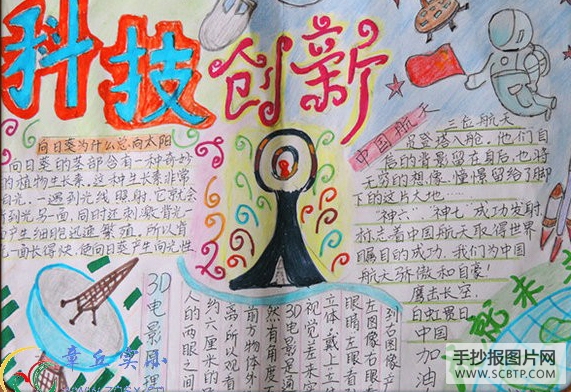 科技创新
向日葵为什么总向太阳
向日葵的茎部含有一种奇妙
的植物生长素，这种生长素非常
光。一遇到光线照射，它就会
到光另一面，同时还刺激背光
产生细胞迅速繁殖，所以背
一面长得快，使向日葵产生向光性
中国航天
三位航天
员登塔入舱，他们自
后的背景留在身后，也将
无穷的想像，憧憬留给了脚
下的这片大地……
神六、神七，成功发射，
标志着中国航天取得世界
瞩目的成功，我们为中国
航天骄傲和自豪！
鹰击长空，
白虹贯日
中国
加油
3D电影原理
人的两眼之间
约六厘米的
离，所以观看
角方物体外
然有角度
3D电影是通
视觉差来实
立体，戴上立体
眼睛看左
左图像右眼看
到右图像产
章丘实小
手抄报图片网
WWW.SCBTP.COM